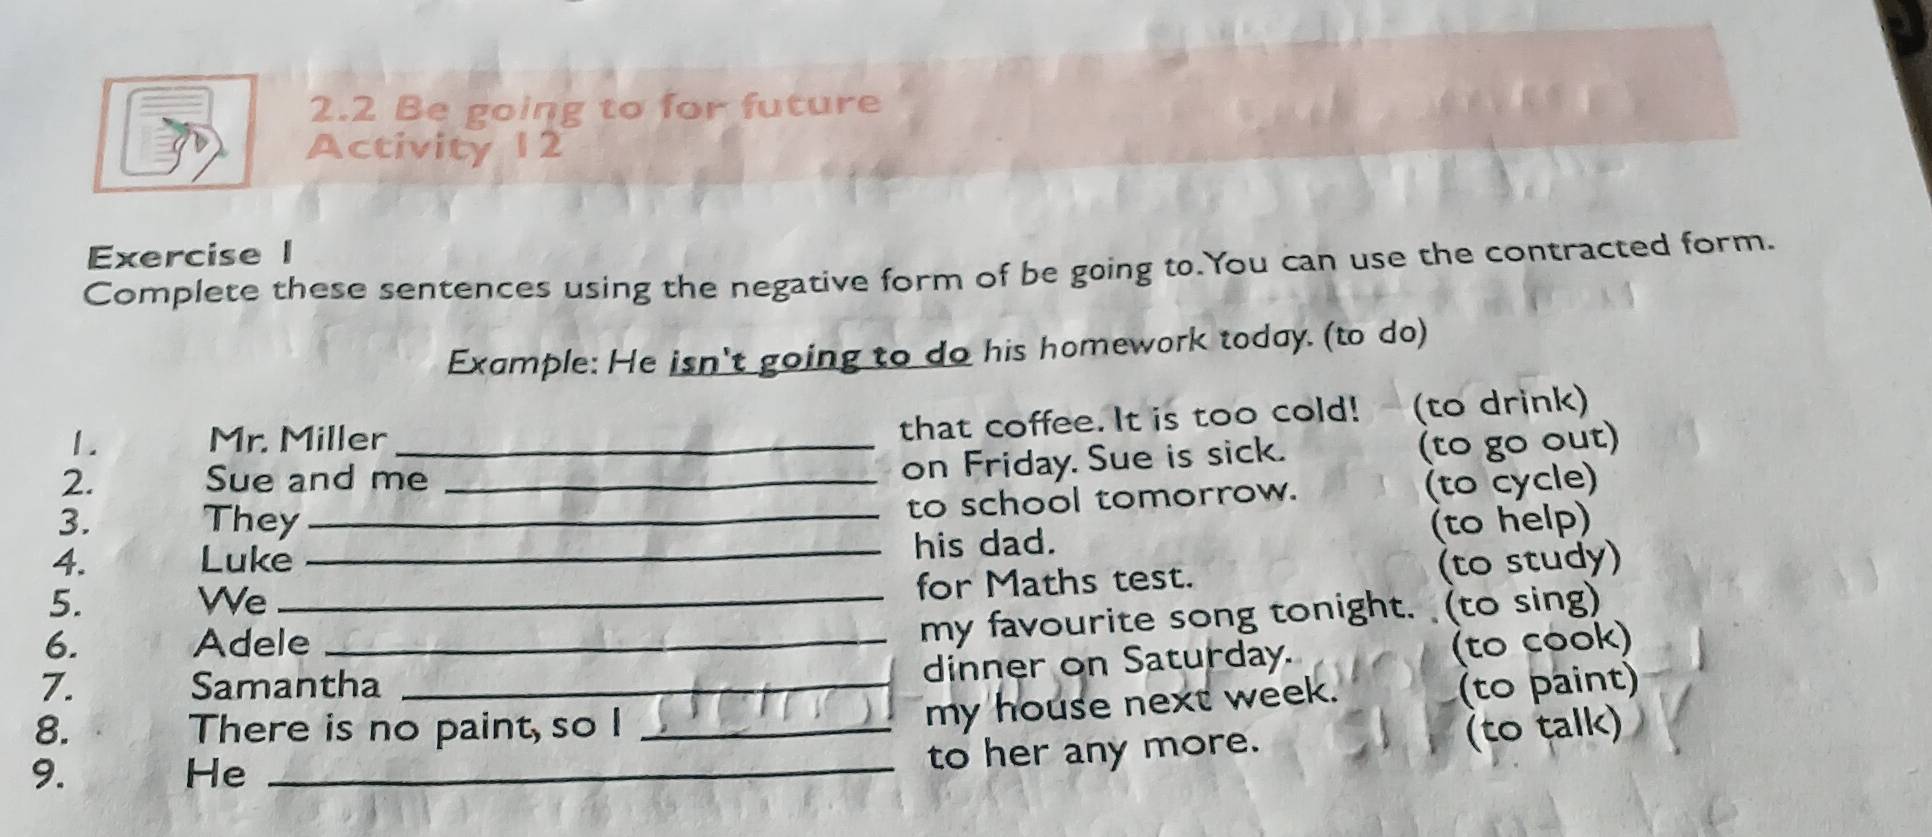 2.2 Be going to for future
Activity 12
Exercise 1
Complete these sentences using the negative form of be going to.You can use the contracted form.
Example: He isn't going to do his homework today. (to do)
1. Mr. Miller ____________ that coffee. It is too cold! (to drink)
2. Sue and me ____________ on Friday. Sue is sick. (to go out)
3. They ____________ to school tomorrow. (to cycle)
4. Luke ____________ his dad. (to help)
5. We ____________ for Maths test. (to study)
6. Adele ____________ my favourite song tonight. (to sing)
7. Samantha ____________ dinner on Saturday. (to cook)
8. There is no paint, so I ____________ my house next week. (to paint)
9. He ____________ to her any more. (to talk)